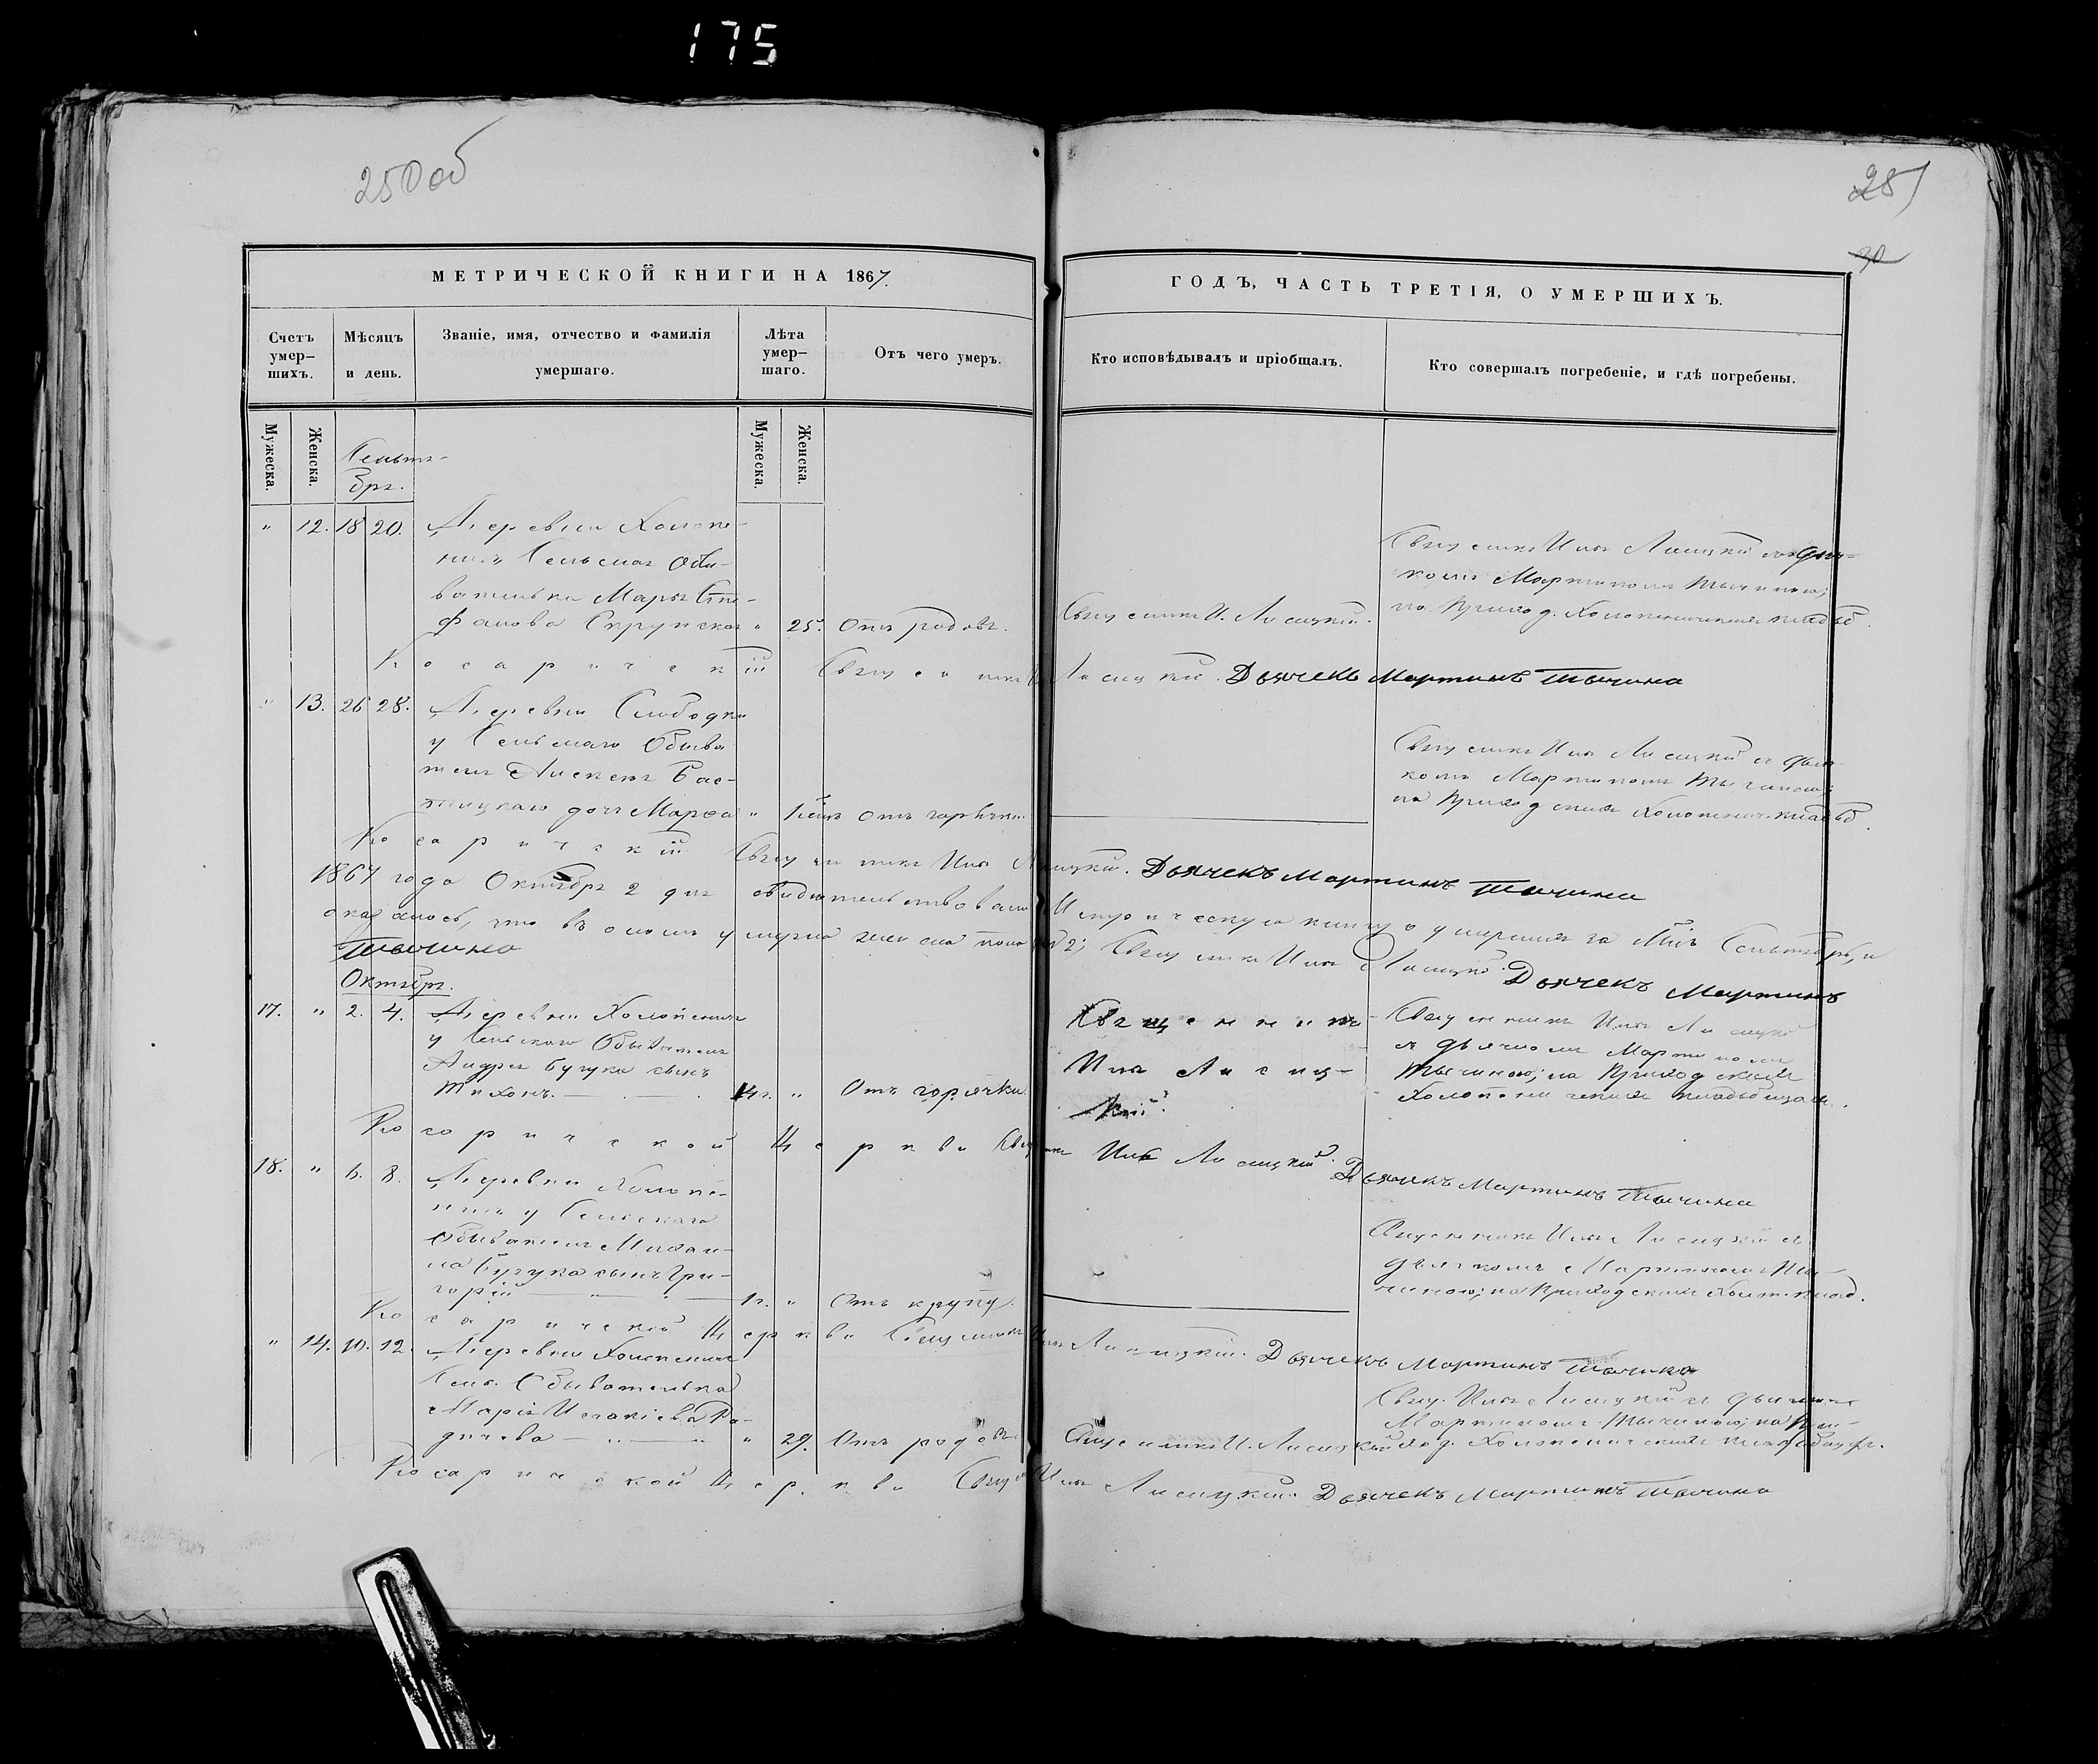 175
250 об
251
30
МЕТРИЧЕСКОЙ КНИГИ НА 1867.
ГОДЪ, ЧАСТЬ ТРЕТІЯ, О УМЕРШИХЪ.
Счетъ умер-шихъ.
Мѣсяцъ и день.
Званіе, имя, отчество и фамилія умершаго.
Лѣта умер-шаго.
Отъ чего умеръ.
Кто исповѣдывалъ и пріобщалъ.
Кто совершалъ погребеніе, и гдѣ погребены.
Мужеска.
Женска.
Мужеска.
Женска.
Сентя-
бря.
" 12. 18 20. Деревни Холопе-
Сельская Обы-
вателька Марья Сте-
фанова " 25. Отъ родовъ.
Священникъ И. Лисицкій.
Священникъ Илія Лисицкій съ дьяч-
комъ Мартиномъ Тычиною;
на Приход. Холопеническомъ кладб.
Косаричскій Священникъ Лисицкій. Дьячекъ Мартинъ Тычина
" 13. 26 28. Деревни Слободки
у Сельскаго Обыва
теля Алексея
дочь Марѳа " Отъ горячки
Священникъ Илія Лисицкій съ дьяч-
комъ Мартиномъ Тычиною;
на Приходскомъ Холопенич. кладб.
Косаричскій Священникъ Илія Лисицкій. Дьячекъ Мартинъ Тычина
1867 года Октября 2 дня свидѣтельствовали Метрическую книгу о умершихъ за Мѣс. Сентябрь, и
оказалось, что въ ономъ умерло женска пола 2; Священникъ Илія Лисицкій. Дьячекъ Мартинъ
Тычина
Октябрь.
17. " 2. 4. Деревни Холопеничъ
у Сельскаго Обывателя
Андрея Бучука сынъ
Тихонъ. " Отъ горячки
Священникъ
Илія Лисиц-
кій.
Священникъ Илія Лисицкій
съ дьячкомъ Мартиномъ
Тычиною; на Приходскомъ
Холопеническомъ кладбищѣ.
Косаричской Церкви Священникъ Илія Лисицкій. Дьячекъ Мартинъ Тычина
18. " 6. 8. Деревни Холопе-
ничъ у Сельскаго
Обывателя Михаи-
ла Бучука сынъ Гри-
горій 1г. " Отъ крупу.
Священникъ Илія Лисицкій съ
дьячкомъ Мартиномъ Ты-
чиною; на Приходскомъ Холоп. клад.
Косаричской Церкви Священникъ Илія Лисицкій. Дьячекъ Мартинъ Тычина
" 14. 10. 12. Деревни Холопеничъ
Сель. Обывателька
Марія Исакіева Ра-
дичева " 29. Отъ родовъ
Священникъ И. Лисицкій
Свящ. Илія Лисицкій съ дьячкомъ
Мартиномъ Тычиною; на При-
ход. Холопеническомъ кладбищѣ.
Косаричской Церкви Свящ. Илія Лисицкій. Дьячекъ Мартинъ Тычина